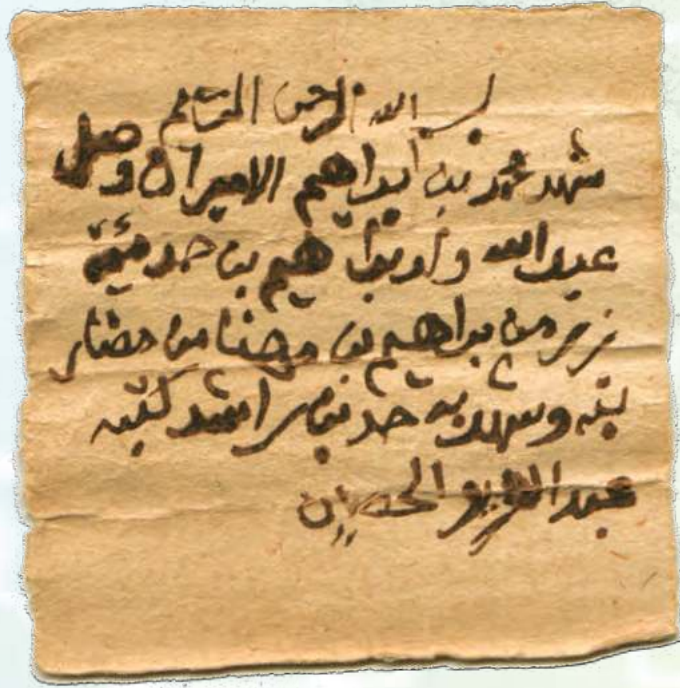 بسم الله الرحمن الرحيم
شهد محمد بن ابراهيم الاميران وصل
عبدالله وابراهيم بن حمد مئة
من براهيم بن مهنا من
وشهد به حمد بن راشد كتبه
عبدالعزيز الحصين